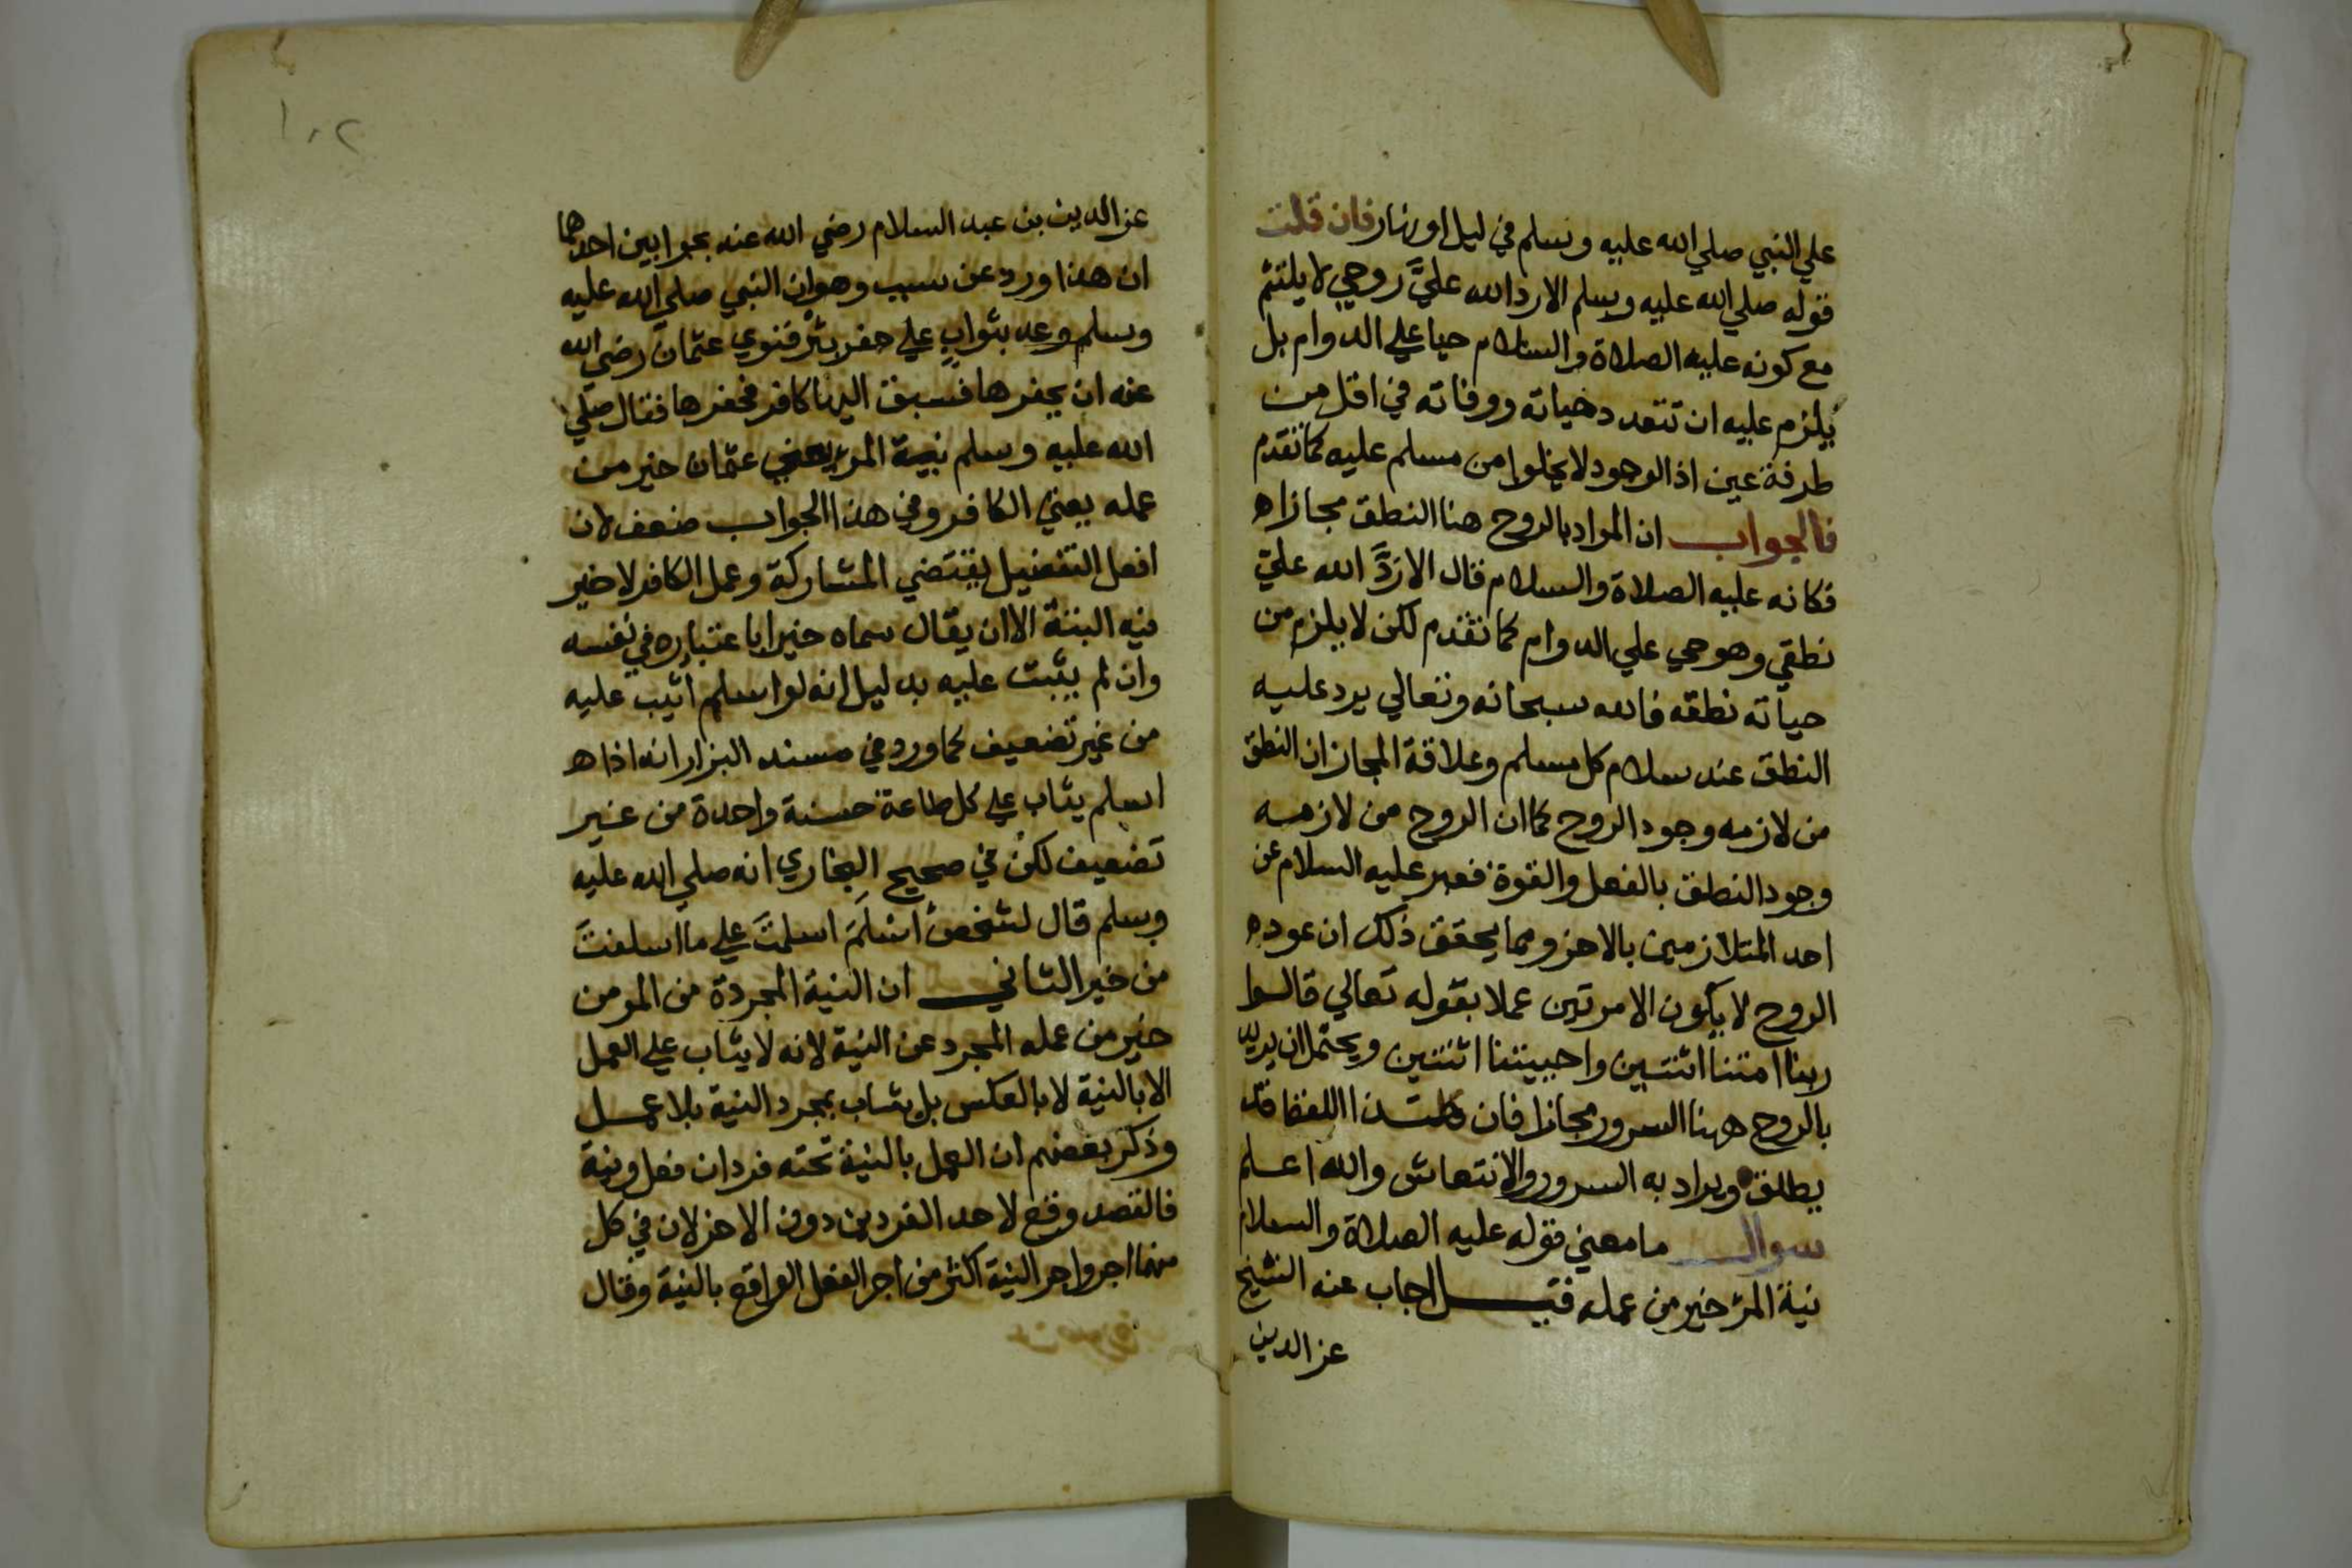 علي النبي صلي الله عليه وسلم في ليل او نهار فان قلت
قوله صلي الله عليه وسلم الا رد الله عليَّ روحي لا يلتئم
مع كونه عليه الصلاة والسلام حيا علي الدوام بل
يلزم عليه ان تتعدد حياته ووفاته في اقل من
طرفة عين اذ الوجود لا يخلوا من مسلم عليه كما تقدم
فالجواب ان المراد بالروح هنا النطق مجازا ه
فكانه عليه الصلاة والسلام قال الا ردَّ الله عليّ
نطقي وهو حي علي الدوام كما تقدم لكن لا يلزم من
حياته نطقه فالله سبحانه وتعالي يرد عليه
النطق عند سلام كل مسلم وعلاقة المجاز ان النطق
من لازمه وجود الروح كما ان الروح من لازمه
وجود النطق بالفعل والقوة فعبر عليه السلام عن
احد المتلازمين بالاخر ومما يحقق ذلك ان عود ه
الروح لا يكون الا مرتين عملا بقوله تعالي قالوا
ربنا امتنا اثنتين واحييتنا اثنتين ويحتمل ان يريد
بالروح ههنا السرور مجازا فان اللفظ قد
يطلق ويراد به السرور والانتعاش والله اعلم
سوال ما معني قوله عليه الصلاة والسلام
نية المرء خير من عمله فقيل اجاب عنه الشيخ
عز الدين
١٠٢
عز الدين بن عبد السلام رضي الله عنه بجوابين احدهما
ان هذا ورد عن سبب وهو ان النبي صلي الله عليه
وسلم وعد بثوابٍ علي حفر بئر فنوي عثمان رضي الله
عنه ان يحفرها فسبق اليها كافر فحفرها فقال صلي
الله عليه وسلم نية المرء يعني عثمان خير من
عمله يعني الكافر وفي هذا الجواب ضعف لان
افعل التفضيل يقتضي المشاركة وعمل الكافر لا خير
فيه البتة الا ان يقال سماه خيرا باعتباره في نفسه
وان لم يثبت عليه بدليل انه لو اسلم اثيب عليه
من غير تضعيف كما ورد في مسند البزار انه اذا ه
اسلم يثاب علي كل طاعة حسنة واحدة من غير
تضعيف لكن في صحيح البخاري انه صلي الله عليه
وسلم قال لشخص اسْلَمَ اسلمتَ علي ما اسلفتَ
من خير الثاني ان النية المجردة من المومن
خير من عمله المجرد عن النية لانه لا يثاب علي العمل
الا بالنية لا بالعكس بل يثاب بمجرد النية بلا عمل
وذكر بعضهم ان العمل بالنية تحته فردان فعل ونية
فالقصد وقع لاحد الفردين دون الاخر لان في كل
منهما اجر واجر النية اكثر من اجر الفعل الواقع بالنية وقال